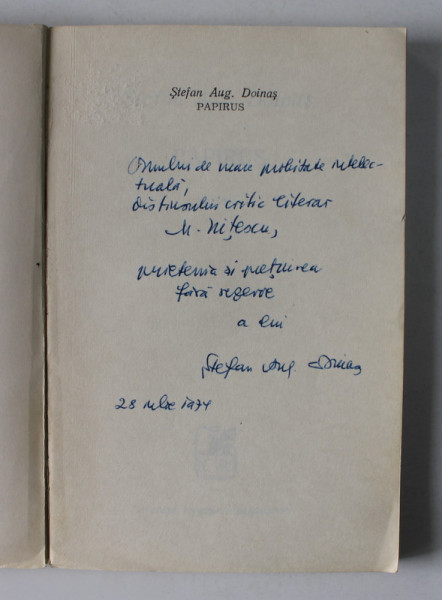 Ștefan Aug. Doinaș
PAPIRUS
Omului de mare probitate intelec-
tuală,
distinsului critic literar
M. Nițescu,
prietenia și prețuirea
fără rezerve
a lui
Ștefan Aug. Doinaș
28 1974